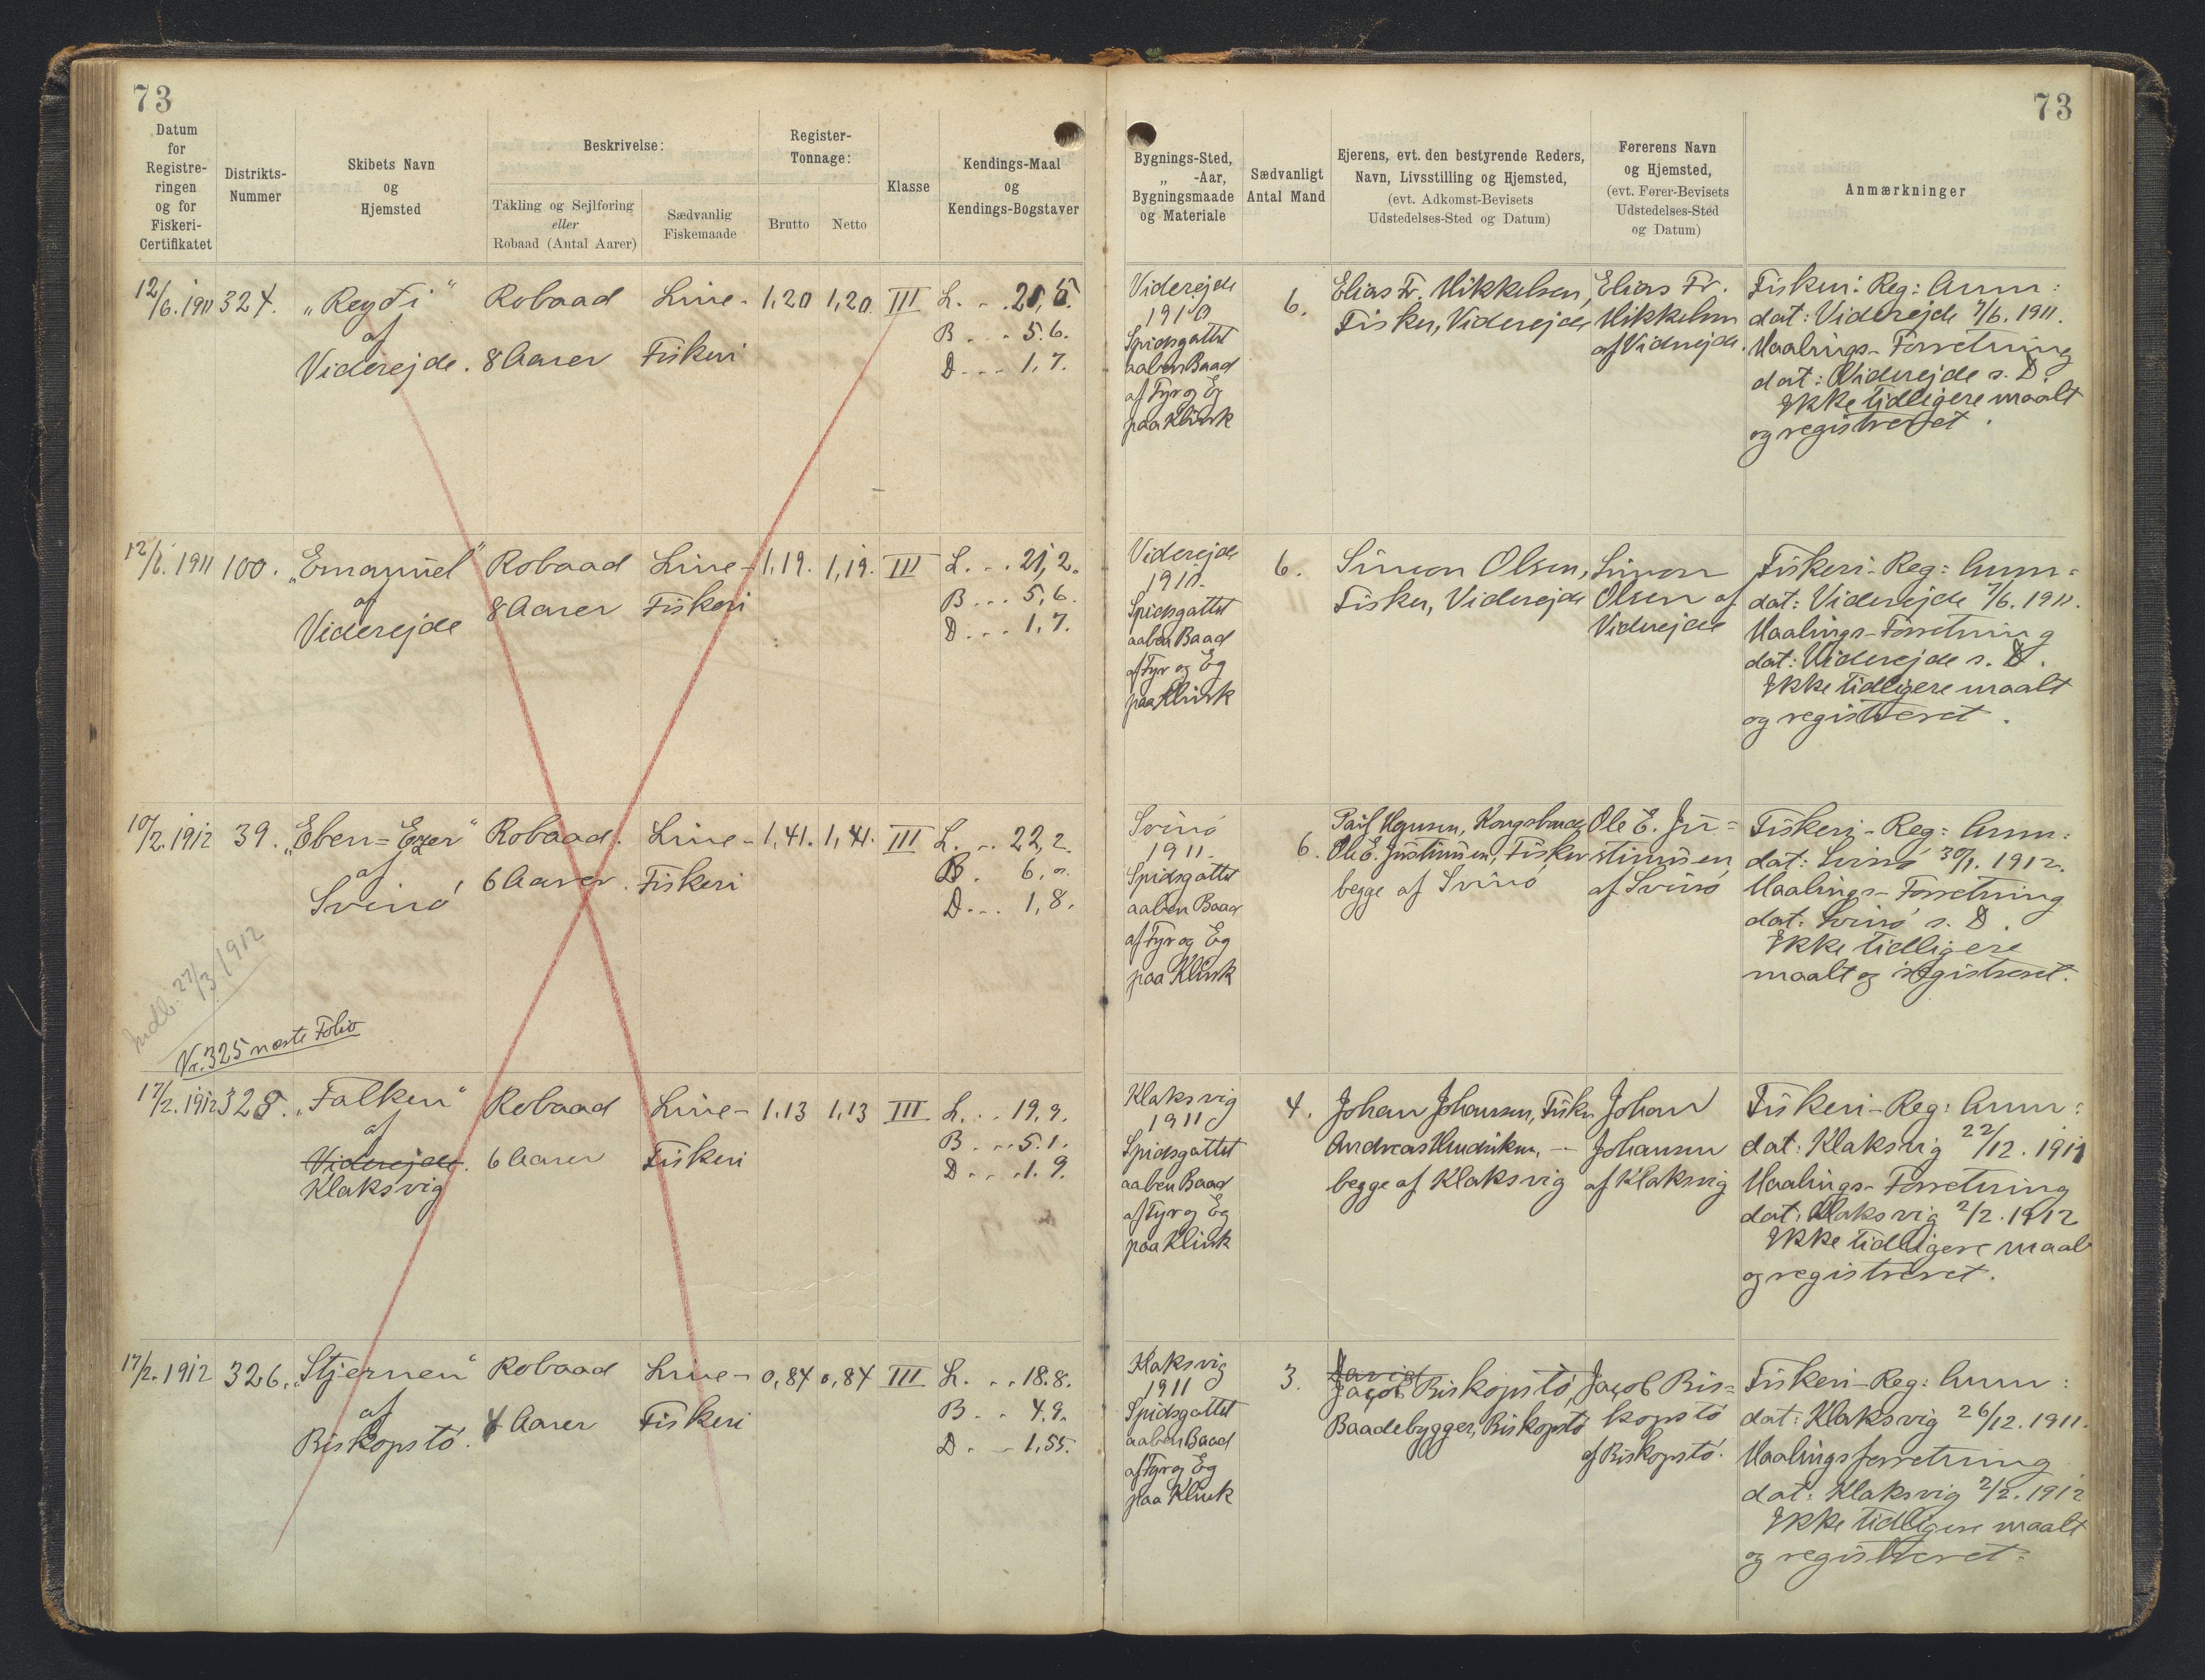 73
73
Datum
for
Registre-
ringen
og for
Fiskeri-
Certifikatet
Distrikts-
Nummer
Skibets Navn
og
Hjemsted
Beskrivelse:
Takling og Sejlføring
eller
Robaad (Antal Aarer)
Sædvanlig
Fiskemaade
Register-
Tonnage:
Brutto
Netto
Klasse
Kendings-Maal
og
Kendings-Bogstaver
Bygnings-Sted,
„ -Aar,
Bygningsmaade
og Materiale
Sædvanligt
Antal Mand
Ejerens, evt. den bestyrende Reders,
Navn, Livsstilling og Hjemsted,
(evt. Adkomst-Bevisets
Udstedelses-Sted og Datum)
Førerens Navn
og Hjemsted,
(evt. Fører-Bevisets
Udstedelses-Sted
og Datum)
Anmærkninger
12/6. 1911
324.
„Reyði“
af
Viderejde.
Robaad
8 Aarer
Line-
Fiskeri
1,20
1,20
III
L. . . 21,5.
B . . . 5.6.
D . . . 1,7.
Viderejde
1910
Spidsgattet
aaben Baad
af Fyr og Eg
paa Klink
6.
Elias Fr. Mikkelsen,
Fisker, Viderejde
Elias Fr.
Mikkelsen
af Viderejde.
Fiskeri: Reg: Anm:
dat: Viderejde 7/6. 1911.
Maalings-Forretning
dat: Viderejde s. D.
Ikke tidligere maalt
og registreret.
12/6. 1911
100.
„Emanuel“
af
Viderejde
Robaad
8 Aarer
Line-
Fiskeri
1,19.
1,19.
III
L. . . 21,2.
B . . . 5,6.
D . . . 1,7.
Viderejde
1911.
Spidsgattet
aaben Baad
af Fyr og Eg
paa Klink
6.
Simon Olsen,
Fisker, Viderejde
Simon
Olsen af
Viderejde
Fiskeri-Reg: Anm:
dat: Viderejde 7/6. 1911.
Maalings-Forretning
dat: Viderejde s. D.
Ikke tidligere maalt
og registreret.
10/2. 1912
39.
„Eben=Ezer“
af
Svinö
Robaad.
6 Aarer.
Line-
Fiskeri
1,41.
1,41.
III
L. . . 22,2.
B. 6,0.
D. . . 1,8.
Svinö
1911.
Spidsgattet
aaben Baad
af Fyr og Eg
paa Klink
6.
Ole E. Justinusen, Fisker
begge af Svinö
Ole E. Ju=
stinusen,
af Svinö
Fiskeri-Reg: Anm:
dat: Svinö 30/1. 1912.
Maalings-Forretning
dat: Svinö s. D.
Ikke tidligere
maalt og registreret.
Indb: 27/3 1912
Nr. 325 næste Folio
17/2. 1912
328.
„Falken“
af
Viderejde.
Klaksvig
Robaad
6 Aarer
Line-
Fiskeri
1.13
1,13
III
L. . . 19,9.
B . . . 5.1.
D . . . 1.9.
Klaksvig
1911
Spidsgattet
aaben Baad
af Fyr og Eg
paa Klink
4.
Johan Johansen, Fisker
Andreas Hendriksen, —
begge af Klaksvig
Johan
Johansen
af Klaksvig
Fiskeri-Reg: Anm:
dat: Klaksvig 22/12. 1911
Maalings-Forretning
dat: Klaksvig 2/2. 1912
Ikke tidligere maalt
og registreret.
17/2. 1912
326.
„Stjernen“
af
Biskopstö.
Robaad
4 Aarer
Line-
Fiskeri
0,84
0,84
III
L. . . 18.8.
B . . 4.9.
D . . 1,55.
Klaksvig
1911
Spidsgattet
aaben Baad
af Fyr og Eg
paa Klink
3.
David
Jacob Biskopstö,
Baadebygger, Biskopstö
Jacob Bis=
kopstö
af Biskopstö.
Fiskeri-Reg: Anm:
dat: Klaksvig 26/12. 1911.
Maalingsforretning
dat: Klaksvig 2/2. 1912
Ikke tidligere maalt
og registreret.